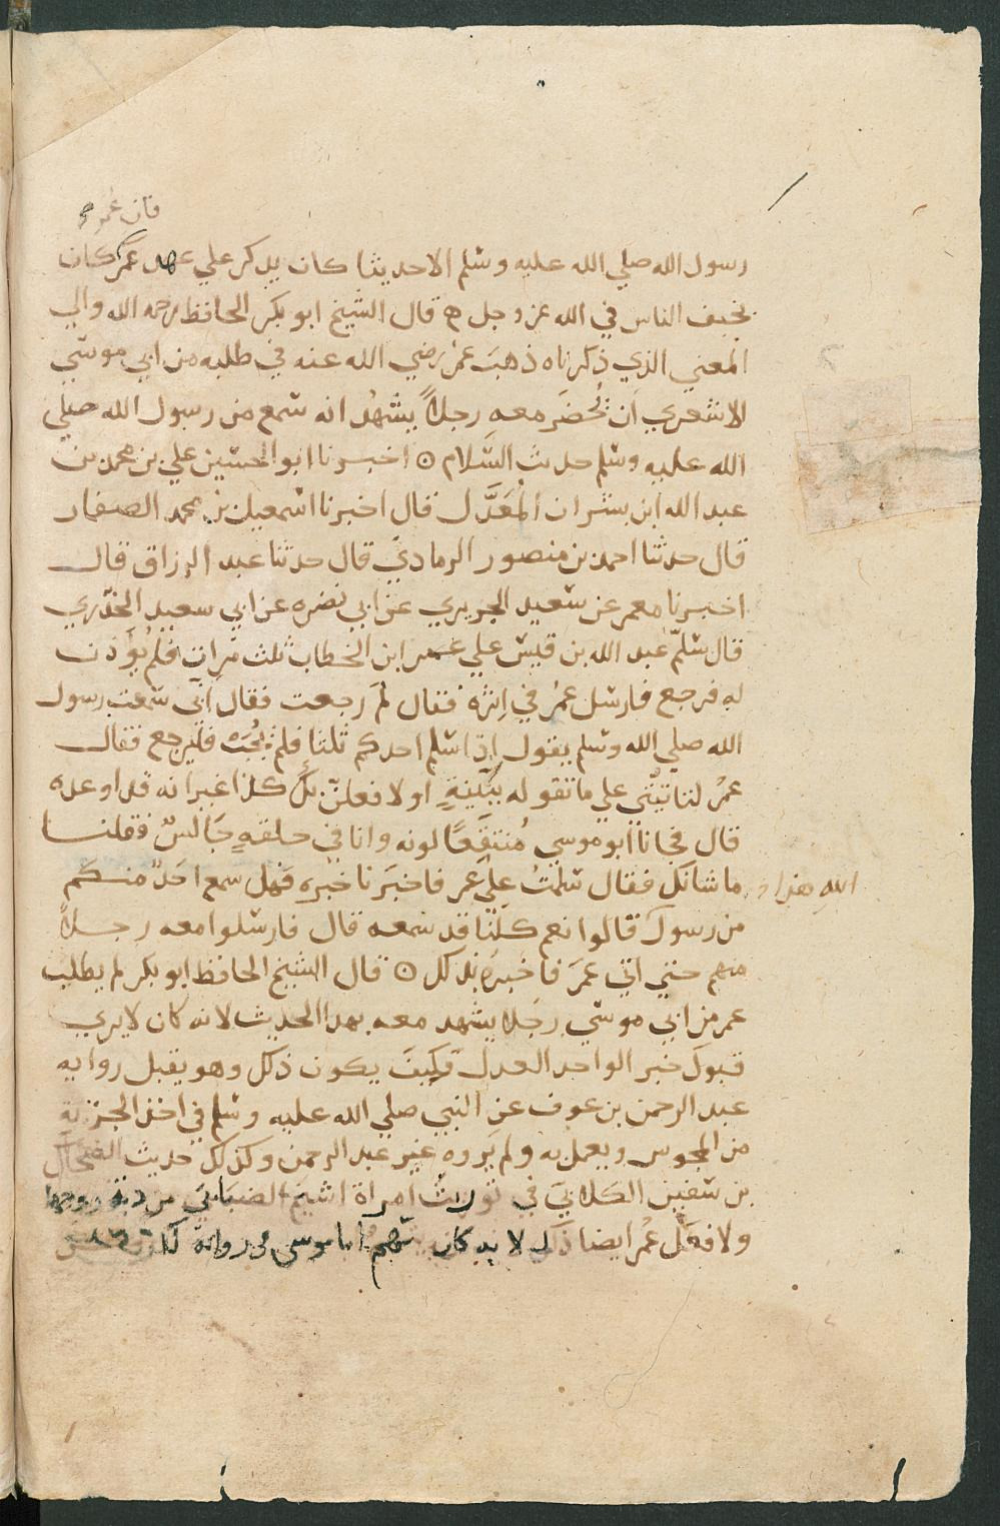 فان عمر
رسول الله صلي الله عليه وسلم الا حديثا كان يذكر علي عهد عمر كان
يخيف الناس في الله عز وجل ه قال الشيخ ابو بكر الحافظ رحمه الله والي
المعني الذي ذكرناه ذهبَ عمرُ رضي الله عنه في طلبه من ابي موسي
الاشعري ان يُحضَر معه رجلاً يشهدُ انه سمع من رسول الله صلي
الله عليه وسلم حديث السَّلام ⊙ اخبرنا ابو الحسين علي بن محمد بن
عبد الله ابن بشران المُعَدَّل قال اخبرنا اسمعيل بن محمد الصفار
قال حدثنا احمد بن منصور الرمادي قال حدثنا عبد الرزاق قال
اخبرنا معمر عن سعيد الجريري عن ابي نضره عن ابي سعيد الخدّري
قال سلّم عبد الله بن قيس علي عمر ابن الخطاب ثلث مَرات فلم يُؤَذن
له فرجع فارسل عمُر في اِثرَه فقال لمَ رجعت فقال اَنّي سَمعت رسول
الله صلي الله وسلم يقول اِذا سَلم احدكم ثلثا فلم يُجَب فليرجع فقال
عمرُ لتاتيَنَّي علي ما تقوله ببَيّنةٍ او لافعلنّ بكَ كذا غير انه قد اوعده
قال فجانا ابو موسي مُنتقَعًا لونه وانا في حلقةٍ جَالسٌ فقلنا
ما شانك فقال سَلمتُ علي عمر فاخبَرنا خبره فهل سمع احَدٌ منكم
الله هذا
من رسول قالوا نعم كلنا قد سمعه قال فارسَلوا معه رجلاً
منهم حتي اتي عمرَ فاخبرَه بذلك ⊙ قال الشيخ الحافظ ابو بكر لم يطلب
عمر من ابي موسي رجَلا يشهد معه بهذا الحديث لانه كان لا يري
قبولَ خبر الواحد العدل وكيفَ يكون ذلك وهو يقبل روايه
عبد الرحمن بن عوف عن النبي صلي الله عليه وسلم في اخذ الجزية
من المجوس ويعمل به ولم يَروه غير عبد الرحمن وكذلك حديث الضحاك
بن سفين الكلابيَ في توريث امراة اشيمَ الضبابي من دية زوجها
ولا فعَل عمُر ايضا ذلك لانه كان يتهم ابا موسي في روايته